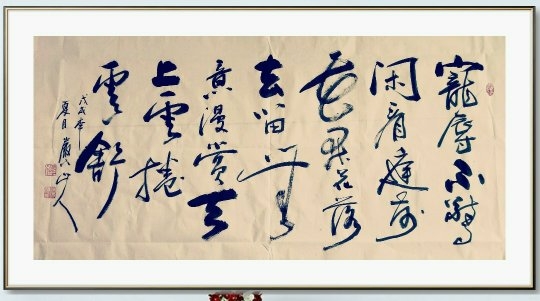 寵辱不驚
闲看庭前
花開花落
去留無
意漫賞天
上雲捲
雲舒
戊戌年
夏月山人